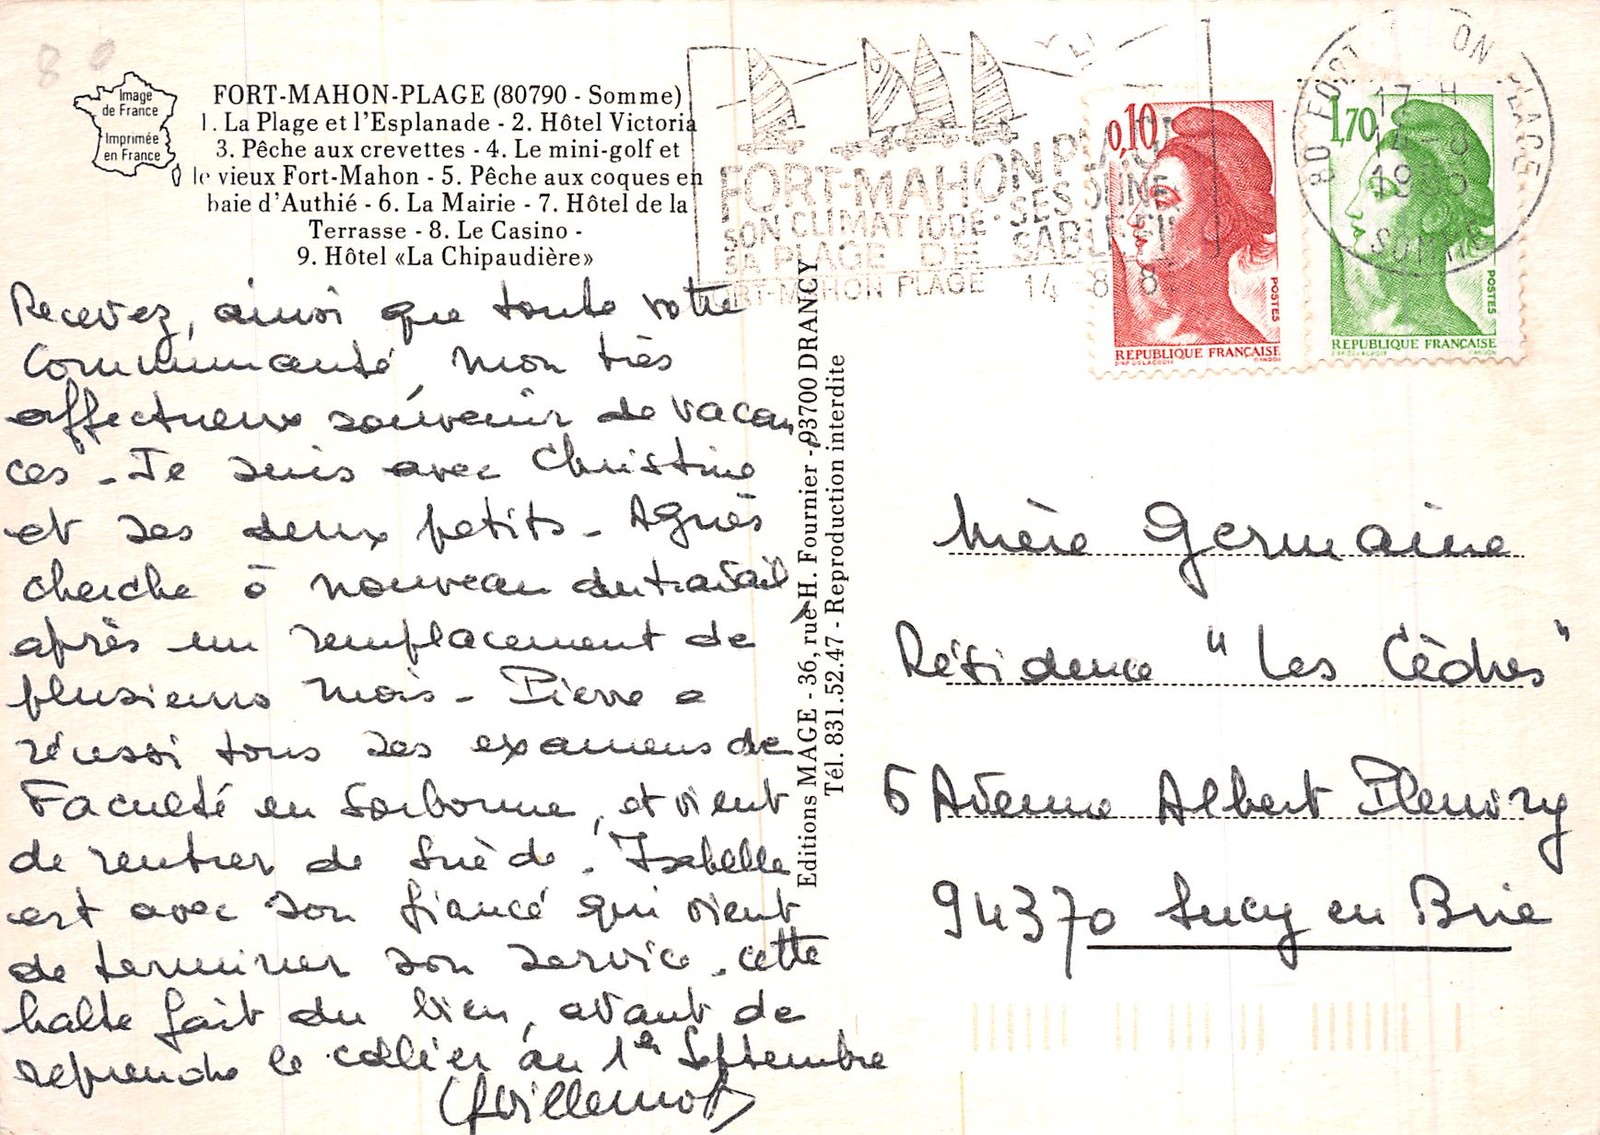 80
Image
de France
Imprimée
en France
FORT-MAHON-PLAGE (80790 - Somme)
1. La Plage et l'Esplanade - 2. Hôtel Victoria
3. Pêche aux crevettes - 4. Le mini-golf et
le vieux Fort-Mahon - 5. Pêche aux coques en
baie d'Authie - 6. La Mairie - 7. Hôtel de la
Terrasse - 8. Le Casino -
9. Hôtel «La Chipaudière»
Recevez, ainsi que toute votre
Communauté, mon très
affectueux souvenir de vacan-
ces - Je suis avec Christine
et ses deux petits - Agnès
cherche à nouveau du travail
après un remplacement de
plusieurs mois - Pierre a
réussi tous ses examens de
Faculté en Sorbonne, et vient
de rentrer de Suède. Isabelle
est avec son fiancé qui vient
de terminer son service. Cette
halte fait du bien, avant de
reprendre le collier au 1er Septembre
Editions MAGE - 36, rue H. Fournier - 93700 DRANCY
Tél. 831.52.47 - Reproduction interdite
FORT-MAHON PLAGE
SON CLIMAT IODE SES DUNE
SA PLAGE DE SABLE FIN
FORT-MAHON PLAGE 14 8 8
0,10
POSTES
REPUBLIQUE FRANÇAISE
1,70
POSTES
REPUBLIQUE FRANÇAISE
80 FORT ON PLAGE
17 H
14 - 8
19
SOMME
Mère Germaine
Résidence "Les Cèdres"
5 Avenue Albert Pleuvry
94370 Sucy en Brie